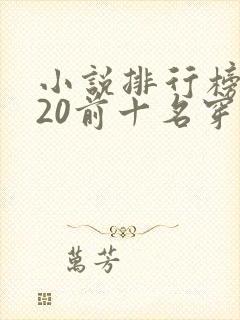 小説排行榜
20前十名穿
萬芳